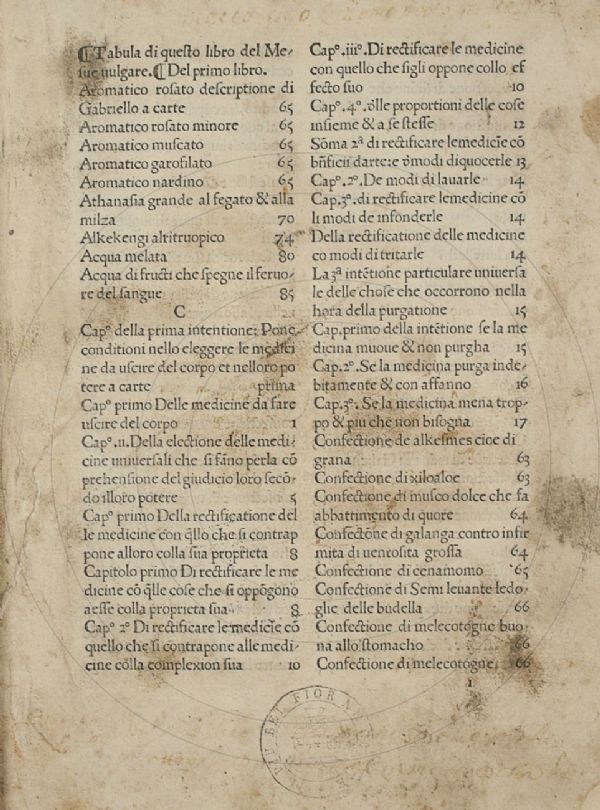 ¶Tabula di questo libro del Me-
sue uulgare.¶Del primo libro.
Aromatico rosato descriptione di
Gabriello a carte 65
Aromatico rosato minore 65
Aromatico muscato 65
Aromatico garofilato 65
Aromatico nardino 65
Athanasia grande al fegato & alla
milza 70
Alkekengi altritruopico 74
Acqua melata 80
Acqua di fructi che spegne il feruo-
re del sangue 85
C
Capº della prima intentione: Pone
conditioni nello eleggere le medici
ne da uscire del corpo et nelloro po
tere a carte prima
Capº primo Delle medicine da fare
uscire del corpo 1
Capº .11. Della electione delle medi-
cine uniuersali che si fāno perla cō
prehensione del giudicio loro secō-
do illoro potere 5
Capº primo Della rectificatione del
le medicine con q̄llo che si contrap
pone alloro colla sua proprieta 8
Capitolo primo Di rectificare le me
dicine cō q̄lle cose che si oppōgono
aesse colla proprieta sua 8
Capº 2º Di rectificare le medicīe cō
quello che si contrapone alle medi-
cine cōlla complexion sua 10
Capº .iiiº. Di rectificare le medicine
con quello che sigli oppone collo ef
fecto suo 10
Capº .4º. d̄lle proportioni delle cose
insieme & a se stesse 12
Sōma 2ª di rectificare lemedicīe cō
bn̄ficii darte: e d̄modi diquocerle 13
Capº .2º. De modi di lauarle 14
Cap.3º. di rectificare lemedicine cō
li modi de infonderle 14
Della rectificatione delle medicine
co modi di tritarle 14
La 3ª intētione particulare uniuersa
le delle chose che occorrono nella
hora della purgatione 15
Cap.primo della intētione se la me
dicina muoue & non purgha 15
Cap.2º. Se la medicina purga inde-
bitamente & con affanno 16
Cap.3º. Se la medicina mena trop-
po & piu che non bisogna 17
Confectione de alkesmes cioe di
grana 63
Confectione di xiloaloe 63
Confectione di musco dolce che fa
abbattimento di quore 64
Confectione di galanga contro infir
mita di uentosita grossa 64
Confectione di cenamomo 65
Confectione di Semi leuante ledo-
glie delle budella 66
Confectione di melecotogne buo-
na allo stomacho 66
Confectione di melecotogne 66
1
BEL FIORA